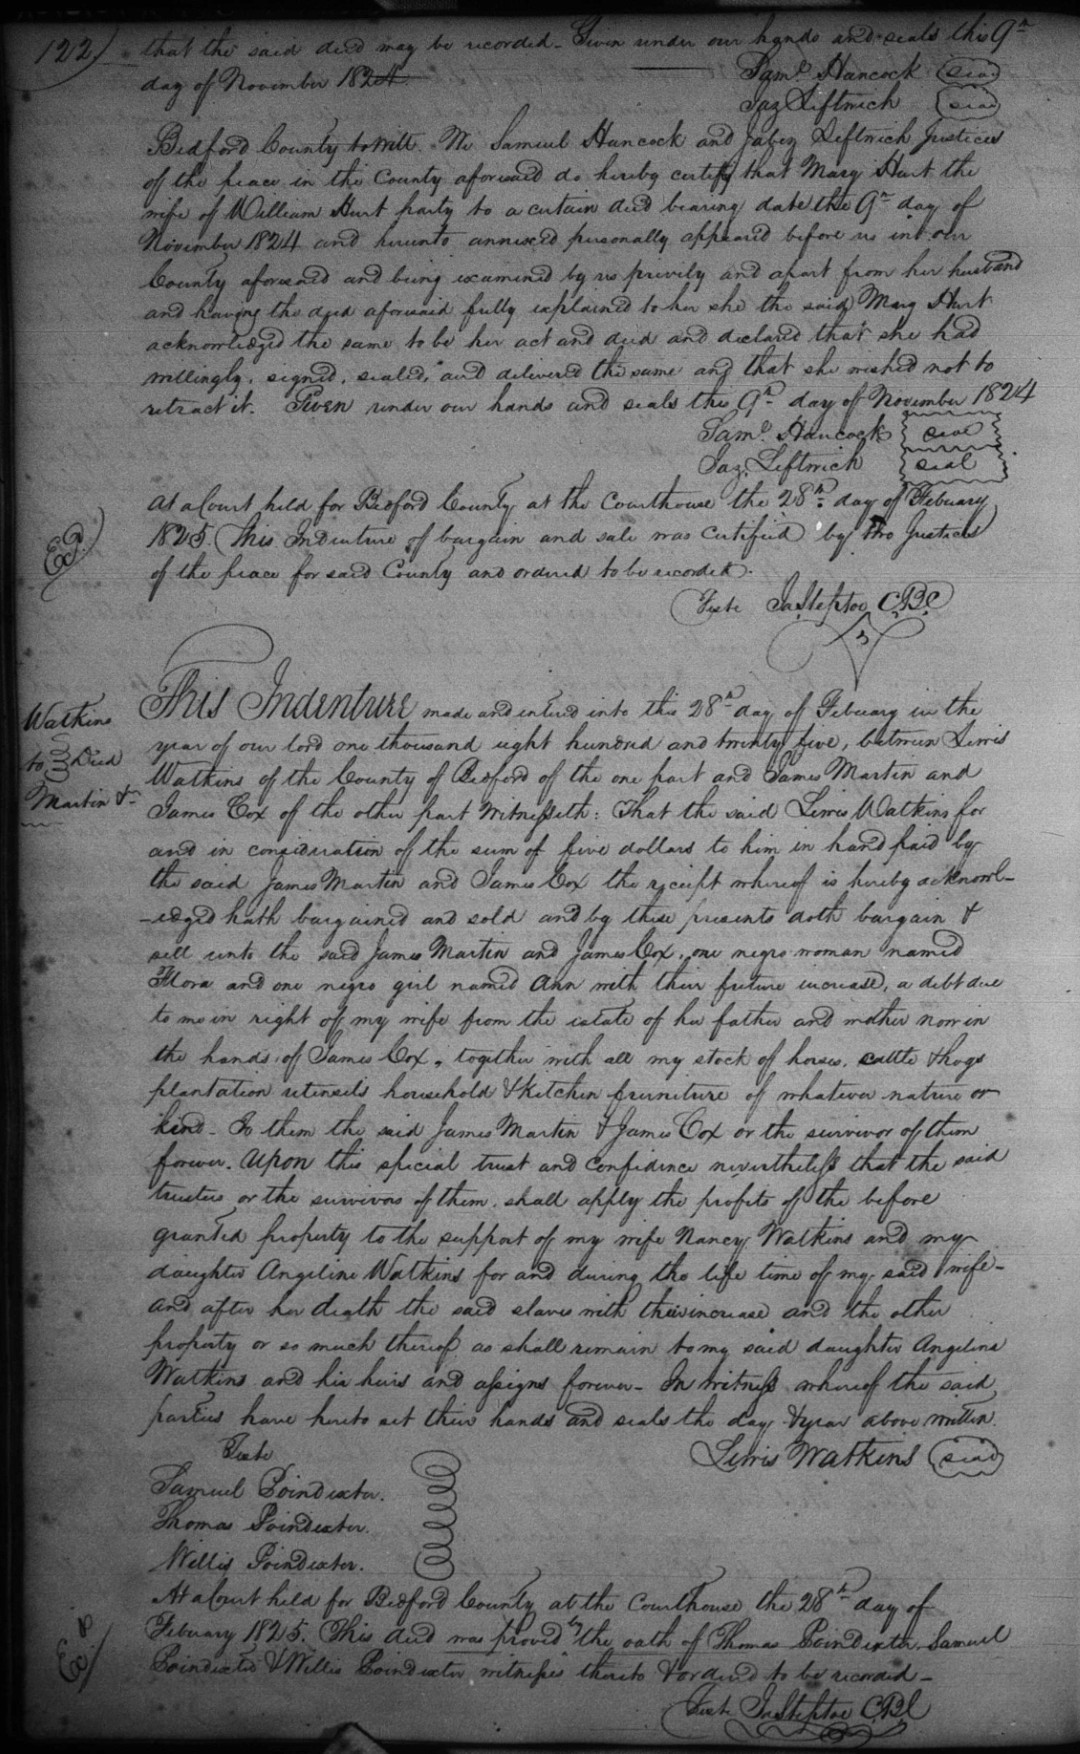 122)
that the said deed may be recorded. Given under our hands and seals this 9th
day of November 1824
Saml. Hancock seal
Jaz Leftwich seal
Bedford County to witt. We Samuel Hancock and Jabez Leftwich Justices
of the peace in the County aforesaid do hereby certify that Mary Hurt the
wife of William Hurt party to a certain deed bearing date the 9th day of
November 1824 and hereunto annexed personally appeared before us in our
County aforesaid and being examined by us privily and apart from her husband
and having the deed aforesaid fully explained to her she the said Mary Hurt
acknowledged the same to be her act and deed and declared that she had
willingly, signed, sealed, and delivered the same and that she wished not to
retract it. Given under our hands and seals this 9th day of November 1824
Saml. Hancock seal
Jaz. Leftwich seal
At a Court held for Bedford County at the Courthouse the 28th day of Febuary
1825. This Indenture of bargain and sale was certified by two Justices
of the peace for said County and ordered to be recorded.
Exd.
Teste Ja. Steptoe C.B.C
Watkins
to Deed
Martin &c
This Indenture made and entered into this 28th day of Febuary in the
year of our lord one thousand eight hundred and twenty five, between Lewis
Watkins of the County of Bedford of the one part and James Martin and
James Cox of the other part Witnesseth: That the said Lewis Watkins for
and in consideration of the sum of five dollars to him in hand paid by
the said James Martin and James Cox the receipt whereof is hereby acknowl-
-edged hath bargained and sold and by these presents doth bargain &
sell unto the said James Martin and James Cox, one negro woman named
Flora and one negro girl named Ann with their future increase, a debt due
to me in right of my wife from the estate of her father and mother now in
the hands of James Cox, together with all my stock of horses, cattle & hogs
plantation utensils household & kitchen furniture of whatever nature or
kind. To them the said James Martin & James Cox or the survivor of them
forever. Upon this special trust and confidence nevertheless that the said
trustees or the survivors of them, shall apply the profits of the before
granted property to the support of my wife Nancy Watkins and my
daughter Angeline Watkins for and during the life time of my said wife-
and after her death the said slaves with their increase and the other
property or so much thereof as shall remain to my said daughter Angelina
Watkins and her heirs and assigns forever- In Witness whereof the said
parties have hereto set their hands and seals the day & year above written.
Teste
Lewis Watkins seal
Samuel Poindexter.
Thomas Poindexter.
Willis Poindexter.
At a Court held for Bedford County at the Courthouse the 28th day of
Febuary 1825. This deed was proved by the oath of Thomas Poindexter, Samuel
Poindexter & Willis Poindexter witnesses thereto & ordered to be recorded-
Exd
Teste Ja. Steptoe C.B.C